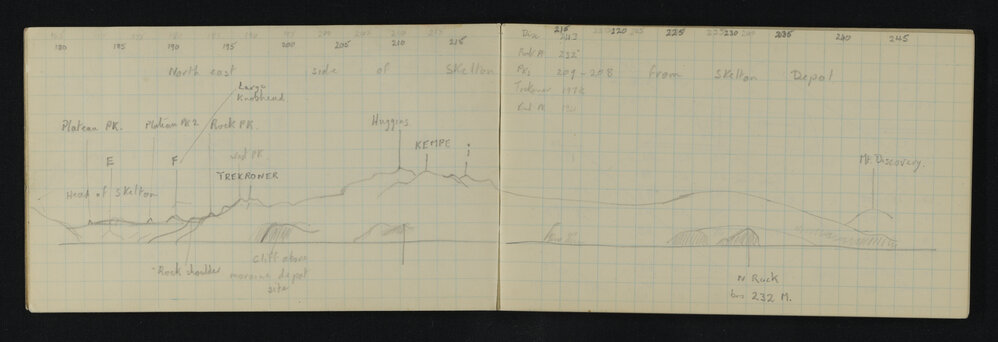 180 185 190 195 200 205 210 215
North east side of Skelton
Large
Knobhead
Plateau PK. Plateau PK 2 Rock PK.
E F
West PK
TREKRONER
Huggins
KEMPE
i
Head of Skelton
Rock shoulder
Cliff above
moraine depot
site
215 220 225 230 235 240 245
Disc 243
PKs 207 - 208
from Skelton Depot
Trekroner
Mt Discovery.
N Rock
brg 232 M.